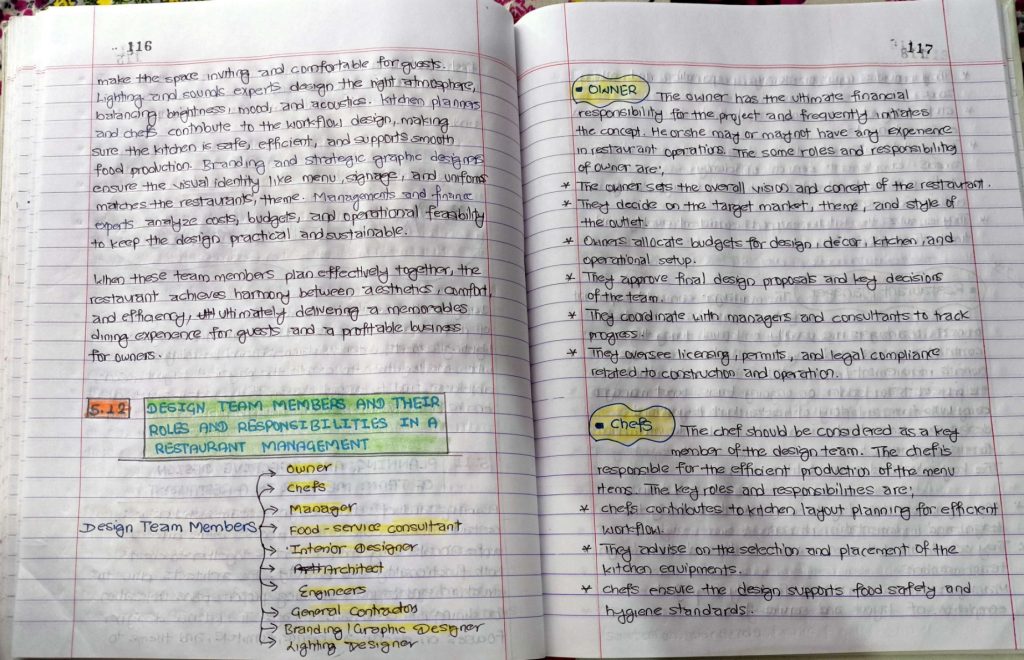 116
make the space inviting and comfortable for guests.
Lighting and sounds experts design the right atmosphere,
balancing brightness, mood, and acoustics. Kitchen planners
and chefs contribute to the workflow design, making
sure the kitchen is safe, efficient, and supports smooth
food production. Branding and strategic graphic designers
ensure the visual identity like menu, signage, and uniforms
matches the restaurants, theme. Managements and finance
experts analyze costs, budgets, and operational feasibility
to keep the design practical and sustainable.
When these team members plan effectively together, the
restaurant achieves harmony between aesthetics, comfort,
and efficiency, ultimately delivering a memorables
dining experience for guests and a profitable business
for owners.
5.12 DESIGN TEAM MEMBERS AND THEIR
ROLES AND RESPONSIBILITIES IN A
RESTAURANT MANAGEMENT
Design Team Members
→ Owner
→ Chefs
→ Manager
→ Food-service consultant
→ Interior Designer
→ Architect
Engineers
→ General Contractor
→ Branding/Graphic Designer
→ Lighting Designer
117
▪ OWNER The owner has the ultimate financial
responsibility for the project and frequently initiates
the concept. He or she may or may not have any experience
in restaurant operations. The some roles and responsibility
of owner are;
* The owner sets the overall vision and concept of the restaurant.
* They decide on the target market, theme, and style of
the outlet.
* Owners allocate budgets for design, decor, kitchen, and
operational setup.
* They approve final design proposals and key decisions
of the team.
* They coordinate with managers and consultants to track
progress.
* They oversee licensing, permits, and legal compliance
related to construction and operation.
▪ Chefs The chef should be considered as a key
member of the design team. The chef is
responsible for the efficient production of the menu
items. The key roles and responsibilities are;
* chefs contributes to kitchen layout planning for efficient
workflow.
* They advise on the selection and placement of the
kitchen equipments.
* chefs ensure the design supports food safety and
hygiene standards.